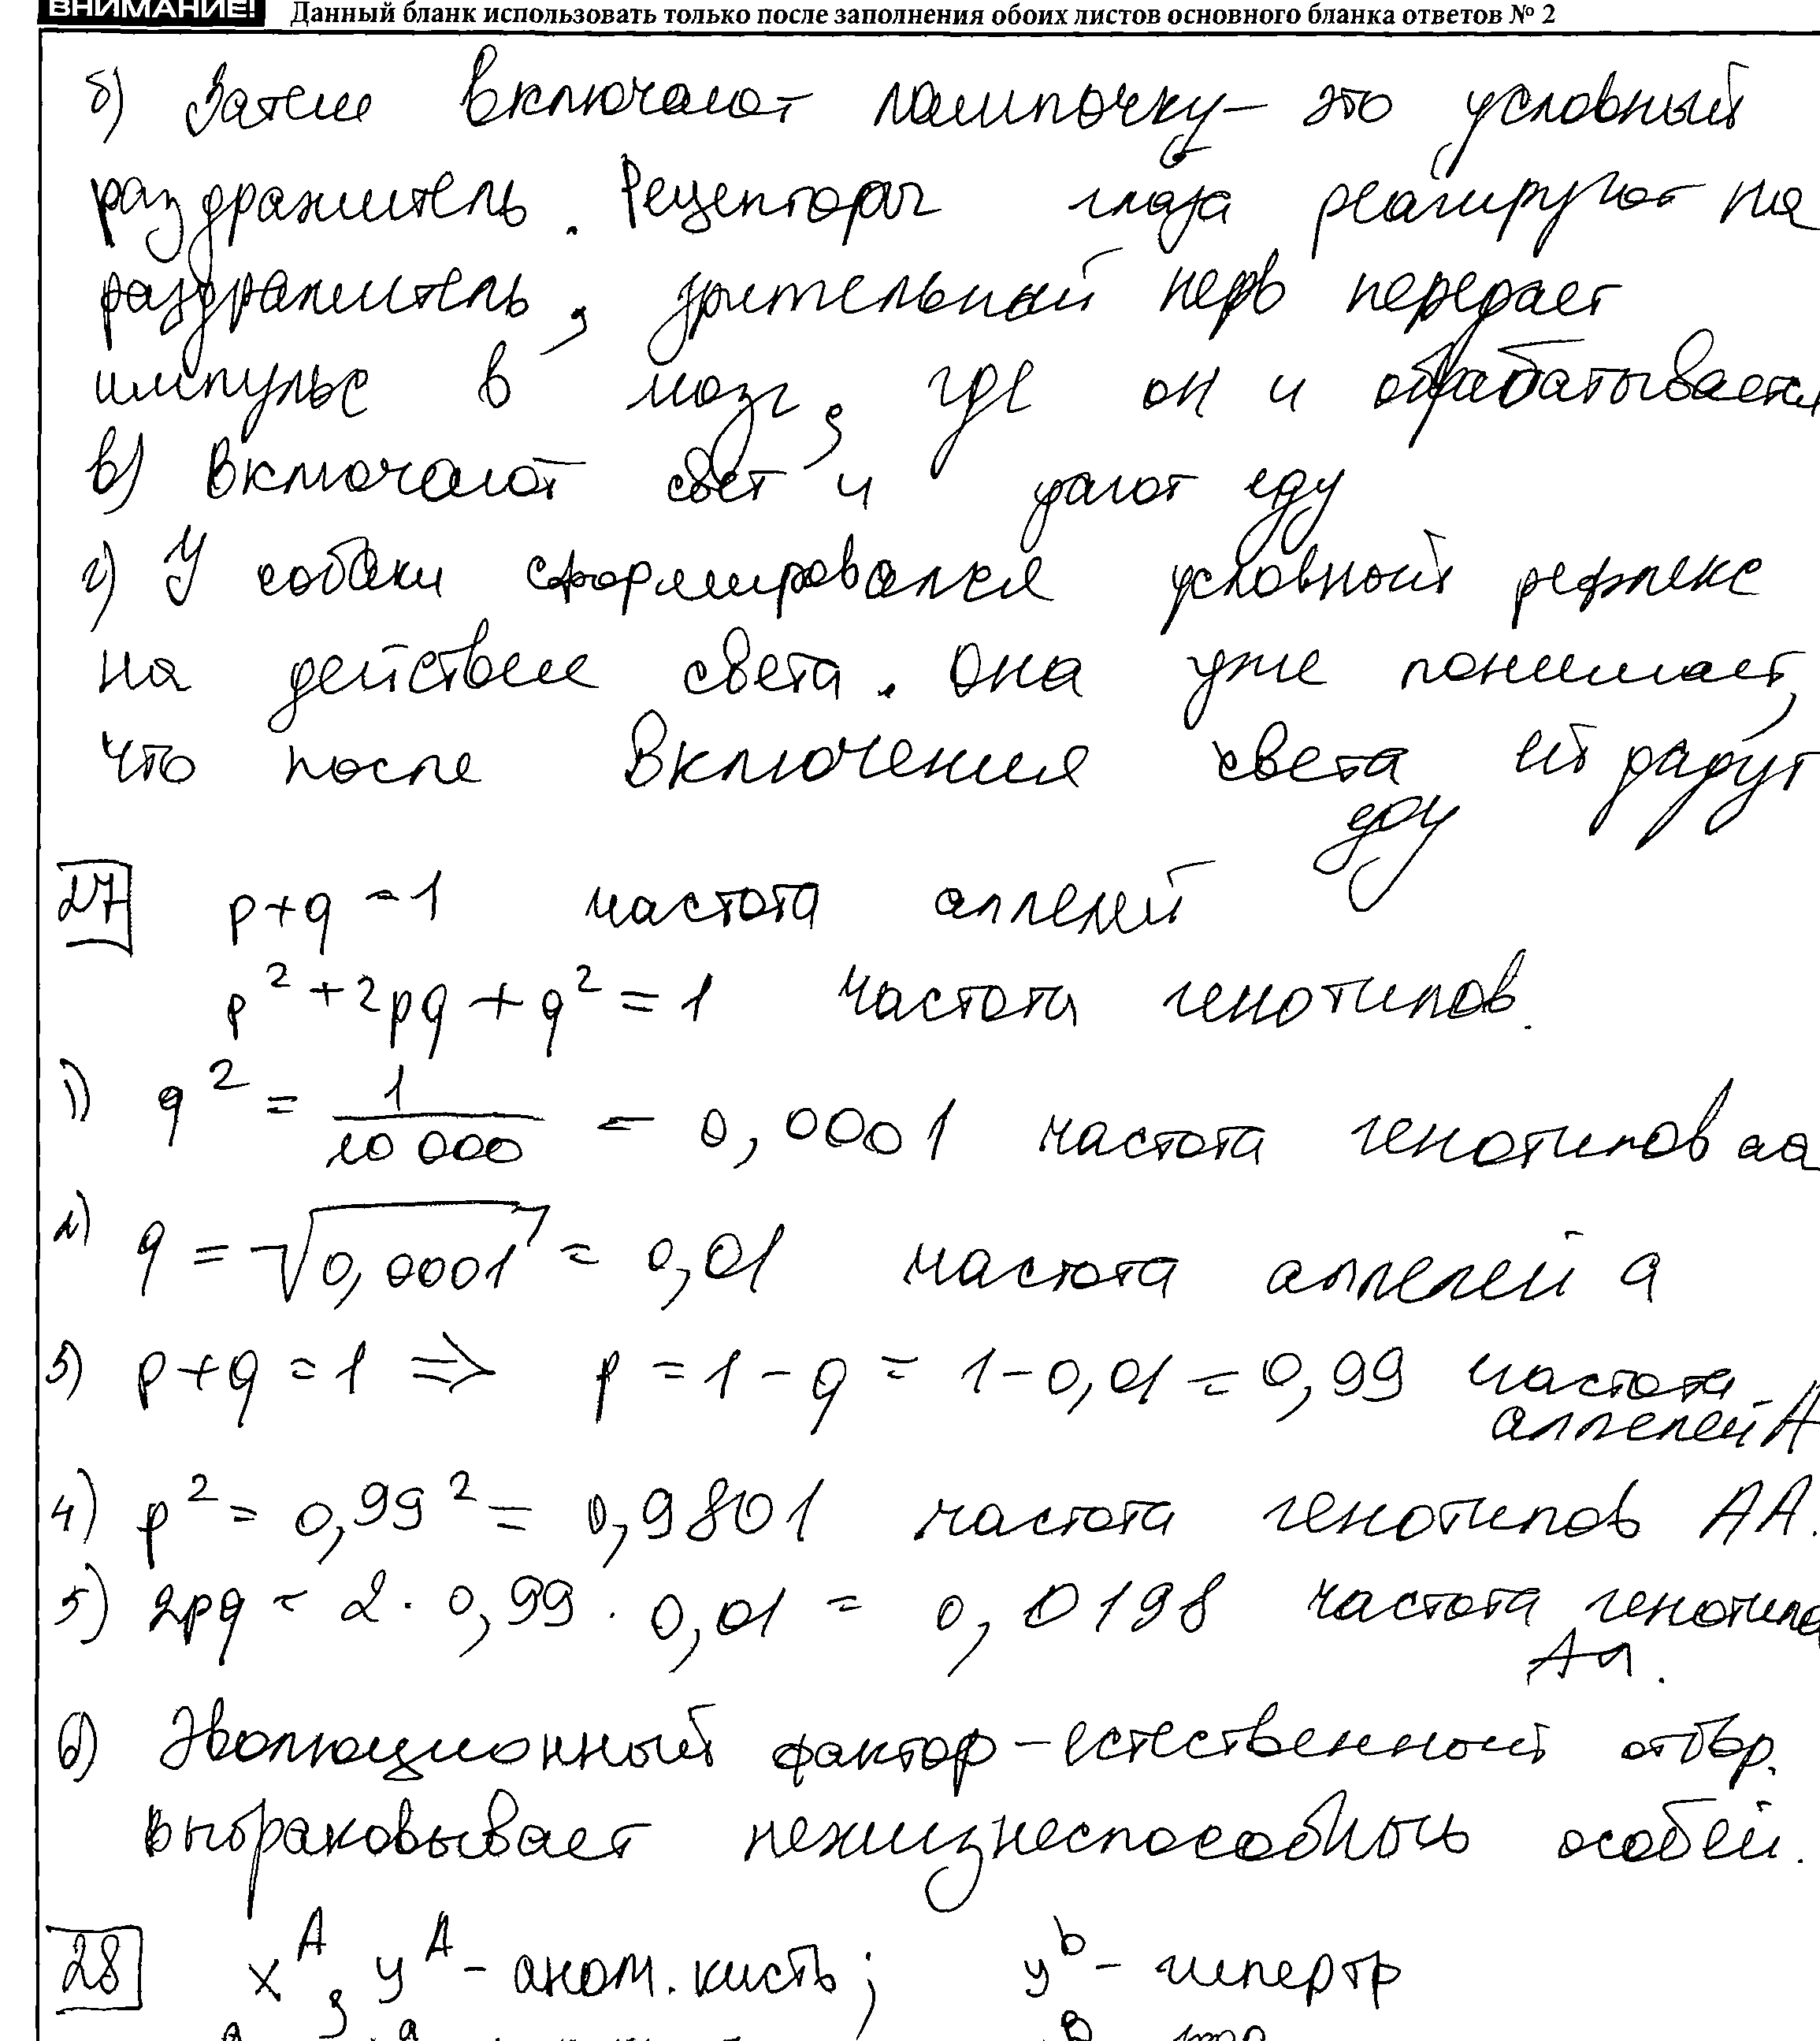 ВНИМАНИЕ! Данный бланк использовать только после заполнения обоих листов основного бланка ответов № 2
б) Затем включают лампочку – это условный
раздражитель. Рецепторы глаза реагируют на
раздражитель, зрительный нерв передает
импульс в мозг, где он и обрабатывается
в) Включают свет и дают еду
г) У собаки сформировался условный рефлекс
на действие света. Она уже понимает,
что после включения света ей дадут
еду
27 p+q=1 частота аллелей
p²+2pq+q²=1 частота генотипов.
1) q² = 1/10 000 = 0,0001 частота генотипов aa
2) q = √0,0001 = 0,01 частота аллелей a
3) p+q=1 ⇒ p = 1 – q = 1 – 0,01 = 0,99 частота
аллелей A
4) p² = 0,99² = 0,9801 частота генотипов AA.
5) 2pq = 2 · 0,99 · 0,01 = 0,0198 частота генотипа
Aa.
6) Эволюционный фактор – естественный отбор.
Выбраковывает нежизнеспособных особей.
28 x^A, y^A – аном. кисть; y^b – гипертр